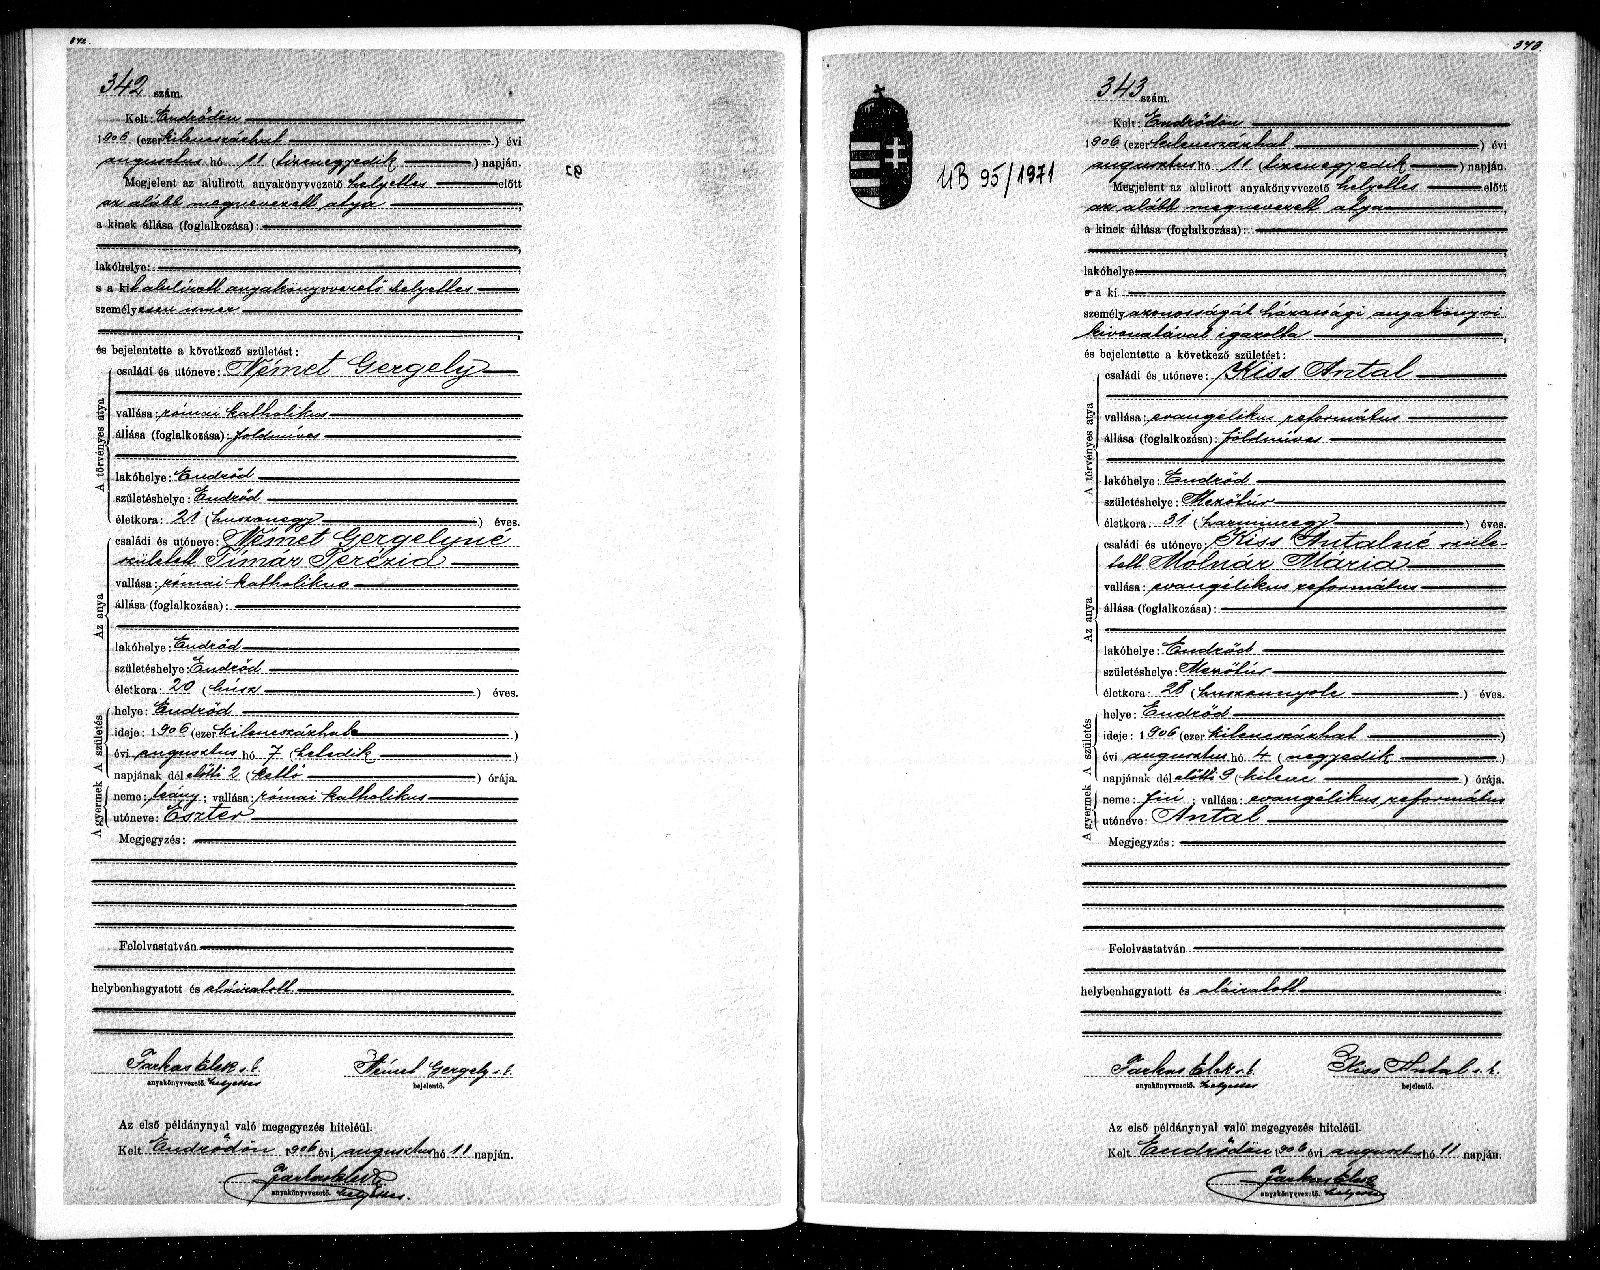 342.
342 szám.
Kelt: Endrődön
1906 (ezer kilenczázhat) évi
augusztus hó 11 (tizenegyedik) napján.
Megjelent az alulirott anyakönyvvezető helyettes előtt
az alább megnevezett atya,
a kinek állása (foglalkozása):
lakóhelye:
s a kit alulírott anyakönyvvezető helyettes
személyesen ismer
és bejelentette a következő születést:
A törvényes atya
családi és utóneve: Német Gergely
vallása: római katholikus
állása (foglalkozása): földmíves
lakóhelye: Endrőd
születéshelye: Endrőd
életkora: 21 (huszonegy) éves.
Az anya
családi és utóneve: Német Gergelyné
született Tímár Terézia
vallása: római katholikus
állása (foglalkozása):
lakóhelye: Endrőd
születéshelye: Endrőd
életkora: 20 (húsz) éves.
A születés
helye: Endrőd
ideje: 1906 (ezer kilenczázhat)
évi augusztus hó 7 (hetedik)
napjának dél előtti 2 (kettő) órája.
A gyermek
neme: leány; vallása: római katholikus
utóneve: Eszter
Megjegyzés:
Felolvastatván
helybenhagyatott és aláiratott
Farkas Elek s. k. Német Gergely s. k.
anyakönyvvezető. helyettes bejelentő.
Az első példánynyal való megegyezés hiteléül.
Kelt Endrődön 1906 évi augusztus hó 11 napján.
Farkas Elek
anyakönyvvezető. helyettes.
343.
UB 95/1971
343 szám.
Kelt: Endrődön
1906 (ezer kilenczázhat) évi
augusztus hó 11 (tizenegyedik) napján.
Megjelent az alulirott anyakönyvvezető helyettes előtt
az alább megnevezett atya,
a kinek állása (foglalkozása):
lakóhelye:
s a ki
személyazonosságát házassági anyakönyvi
kivonatával igazolta,
és bejelentette a következő születést:
A törvényes atya
családi és utóneve: Kiss Antal
vallása: evangélikus református
állása (foglalkozása): földmíves
lakóhelye: Endrőd
születéshelye: Mezőtúr
életkora: 31 (harminczegy) éves.
Az anya
családi és utóneve: Kiss Antalné szüle-
tett Molnár Mária
vallása: evangélikus református
állása (foglalkozása):
lakóhelye: Endrőd
születéshelye: Mezőtúr
életkora: 28 (huszonnyolc) éves.
A születés
helye: Endrőd
ideje: 1906 (ezer kilenczázhat)
évi augusztus hó 4 (negyedik)
napjának dél előtti 9 (kilenc) órája.
A gyermek
neme: fiú; vallása: evangélikus református
utóneve: Antal
Megjegyzés:
Felolvastatván
helybenhagyatott és aláiratott
Farkas Elek s. k. Kiss Antal s. k.
anyakönyvvezető. helyettes bejelentő.
Az első példánynyal való megegyezés hiteléül.
Kelt Endrődön 1906 évi augusztus hó 11 napján.
Farkas Elek
anyakönyvvezető. helyettes